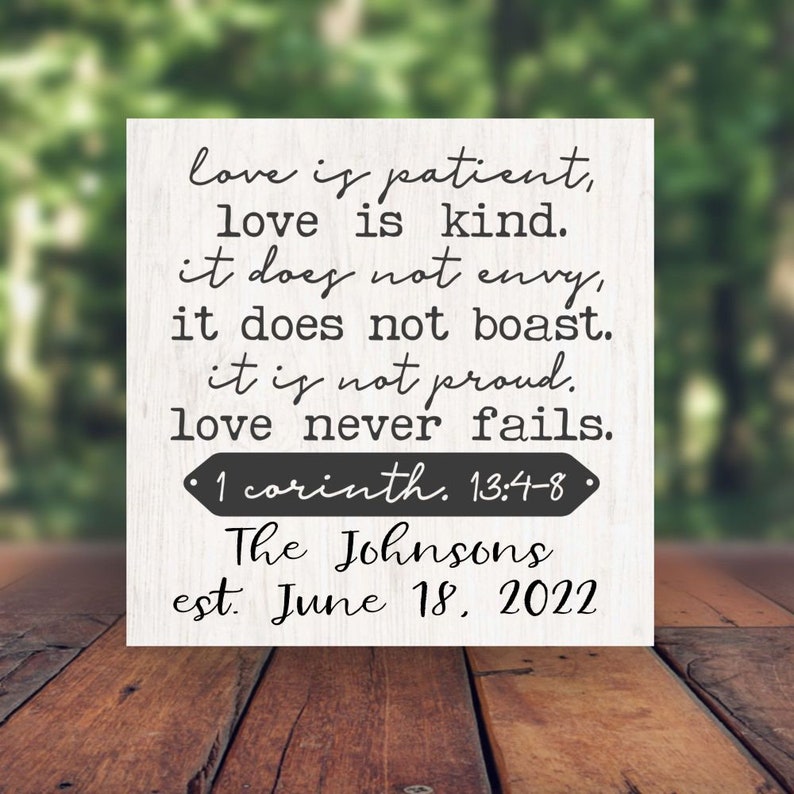 love is patient,
love is kind.
it does not envy,
it does not boast.
it is not proud.
love never fails.
1 corinth. 13:4-8
The Johnsons
est. June 18, 2022